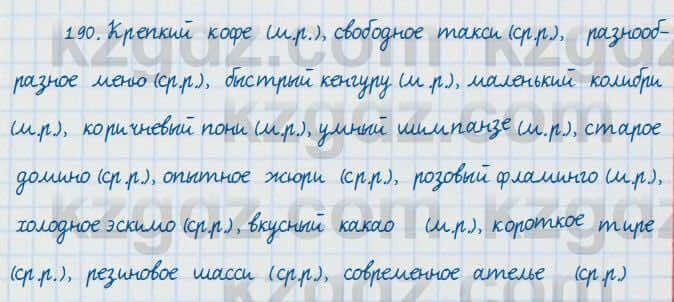 190. Крепкий кофе (м.р.), свободное такси (ср.р.), разнооб-
разное меню (ср.р.), быстрый кенгуру (м.р.), маленький колибри
(м.р.), коричневый пони (м.р.), умный шимпанзе (м.р.), старое
домино (ср.р.), опытное жюри (ср.р.), розовый фламинго (м.р.),
холодное эскимо (ср.р.), вкусный какао (м.р.), короткое тире
(ср.р.), резиновое шасси (ср.р.), современное ателье (ср.р.)